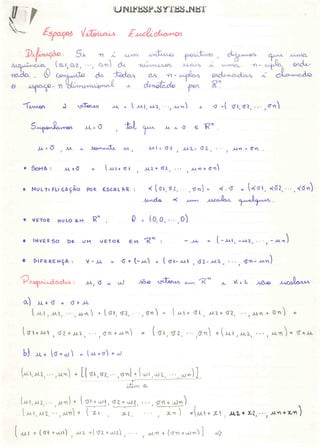 UNIFESP.SYTES.NET
Espaços Vetoriais Euclidianos
Definição. Se n é um inteiro positivo, dizemos que uma
sequência (a1, a2, ..., an) de números reais é uma n-upla orde-
nada. O conjunto de todas as n-uplas ordenadas é chamado
o espaço-n dimensional e denotado por Rⁿ.
Temos 2 vetores u = (u1, u2, ..., un) e v = (v1, v2, ..., vn)
Suponhamos u = v, tal que u e v ∈ Rⁿ.
u = v, se e somente se, u1 = v1, u2 = v2, ..., un = vn.
• SOMA: u+v = (u1+v1, u2+v2, ..., un+vn)
• MULTIPLICAÇÃO POR ESCALAR: α(v1, v2, ..., vn) = α·v = (αv1, αv2, ..., αvn)
sendo α um escalar qualquer.
• VETOR NULO EM Rⁿ. 0 = (0,0, ..., 0)
• INVERSO DE UM VETOR EM Rⁿ: -u = (-u1, -u2, ..., -un)
• DIFERENÇA: v-u = v+(-u) = (v1-u1, v2-u2, ..., vn-un)
Propriedades: u, v e w são vetores em Rⁿ e são escalares
a) u+v = v+u
(u1, u2, ..., un) + (v1, v2, ..., vn) = (u1+v1, u2+v2, ..., un+vn) =
(v1+u1, v2+u2, ..., vn+un) = (v1, v2, ..., vn) + (u1, u2, ..., un) = v+u
b) u+(v+w) = (u+v)+w
(u1, u2, ..., un) + [(v1, v2, ..., vn) + (w1, w2, ..., wn)]
(u1, u2, ..., un) + (v1+w1, v2+w2, ..., vn+wn)
(u1, u2, ..., un) + (x1, x2, ..., xn) = (u1+x1, u2+x2, ..., un+xn)
(u1+(v1+w1), u2+(v2+w2), ..., un+(vn+wn)) ⇒